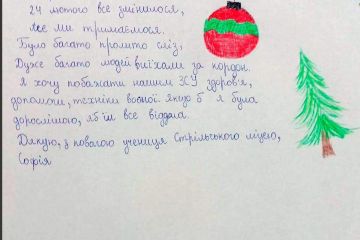 24 лютого все змінилося,
Але ми тримаємося.
Було багато пролито сліз,
Дуже багато людей виїхали за кордон.
Я хочу побажати нашим ЗСУ здоров'я,
допомоги, техніки воєної. якщо б я була
дорослішою, я б їм все віддала.
Дякую, з повагою учениця Стрільського ліцею,
Софія